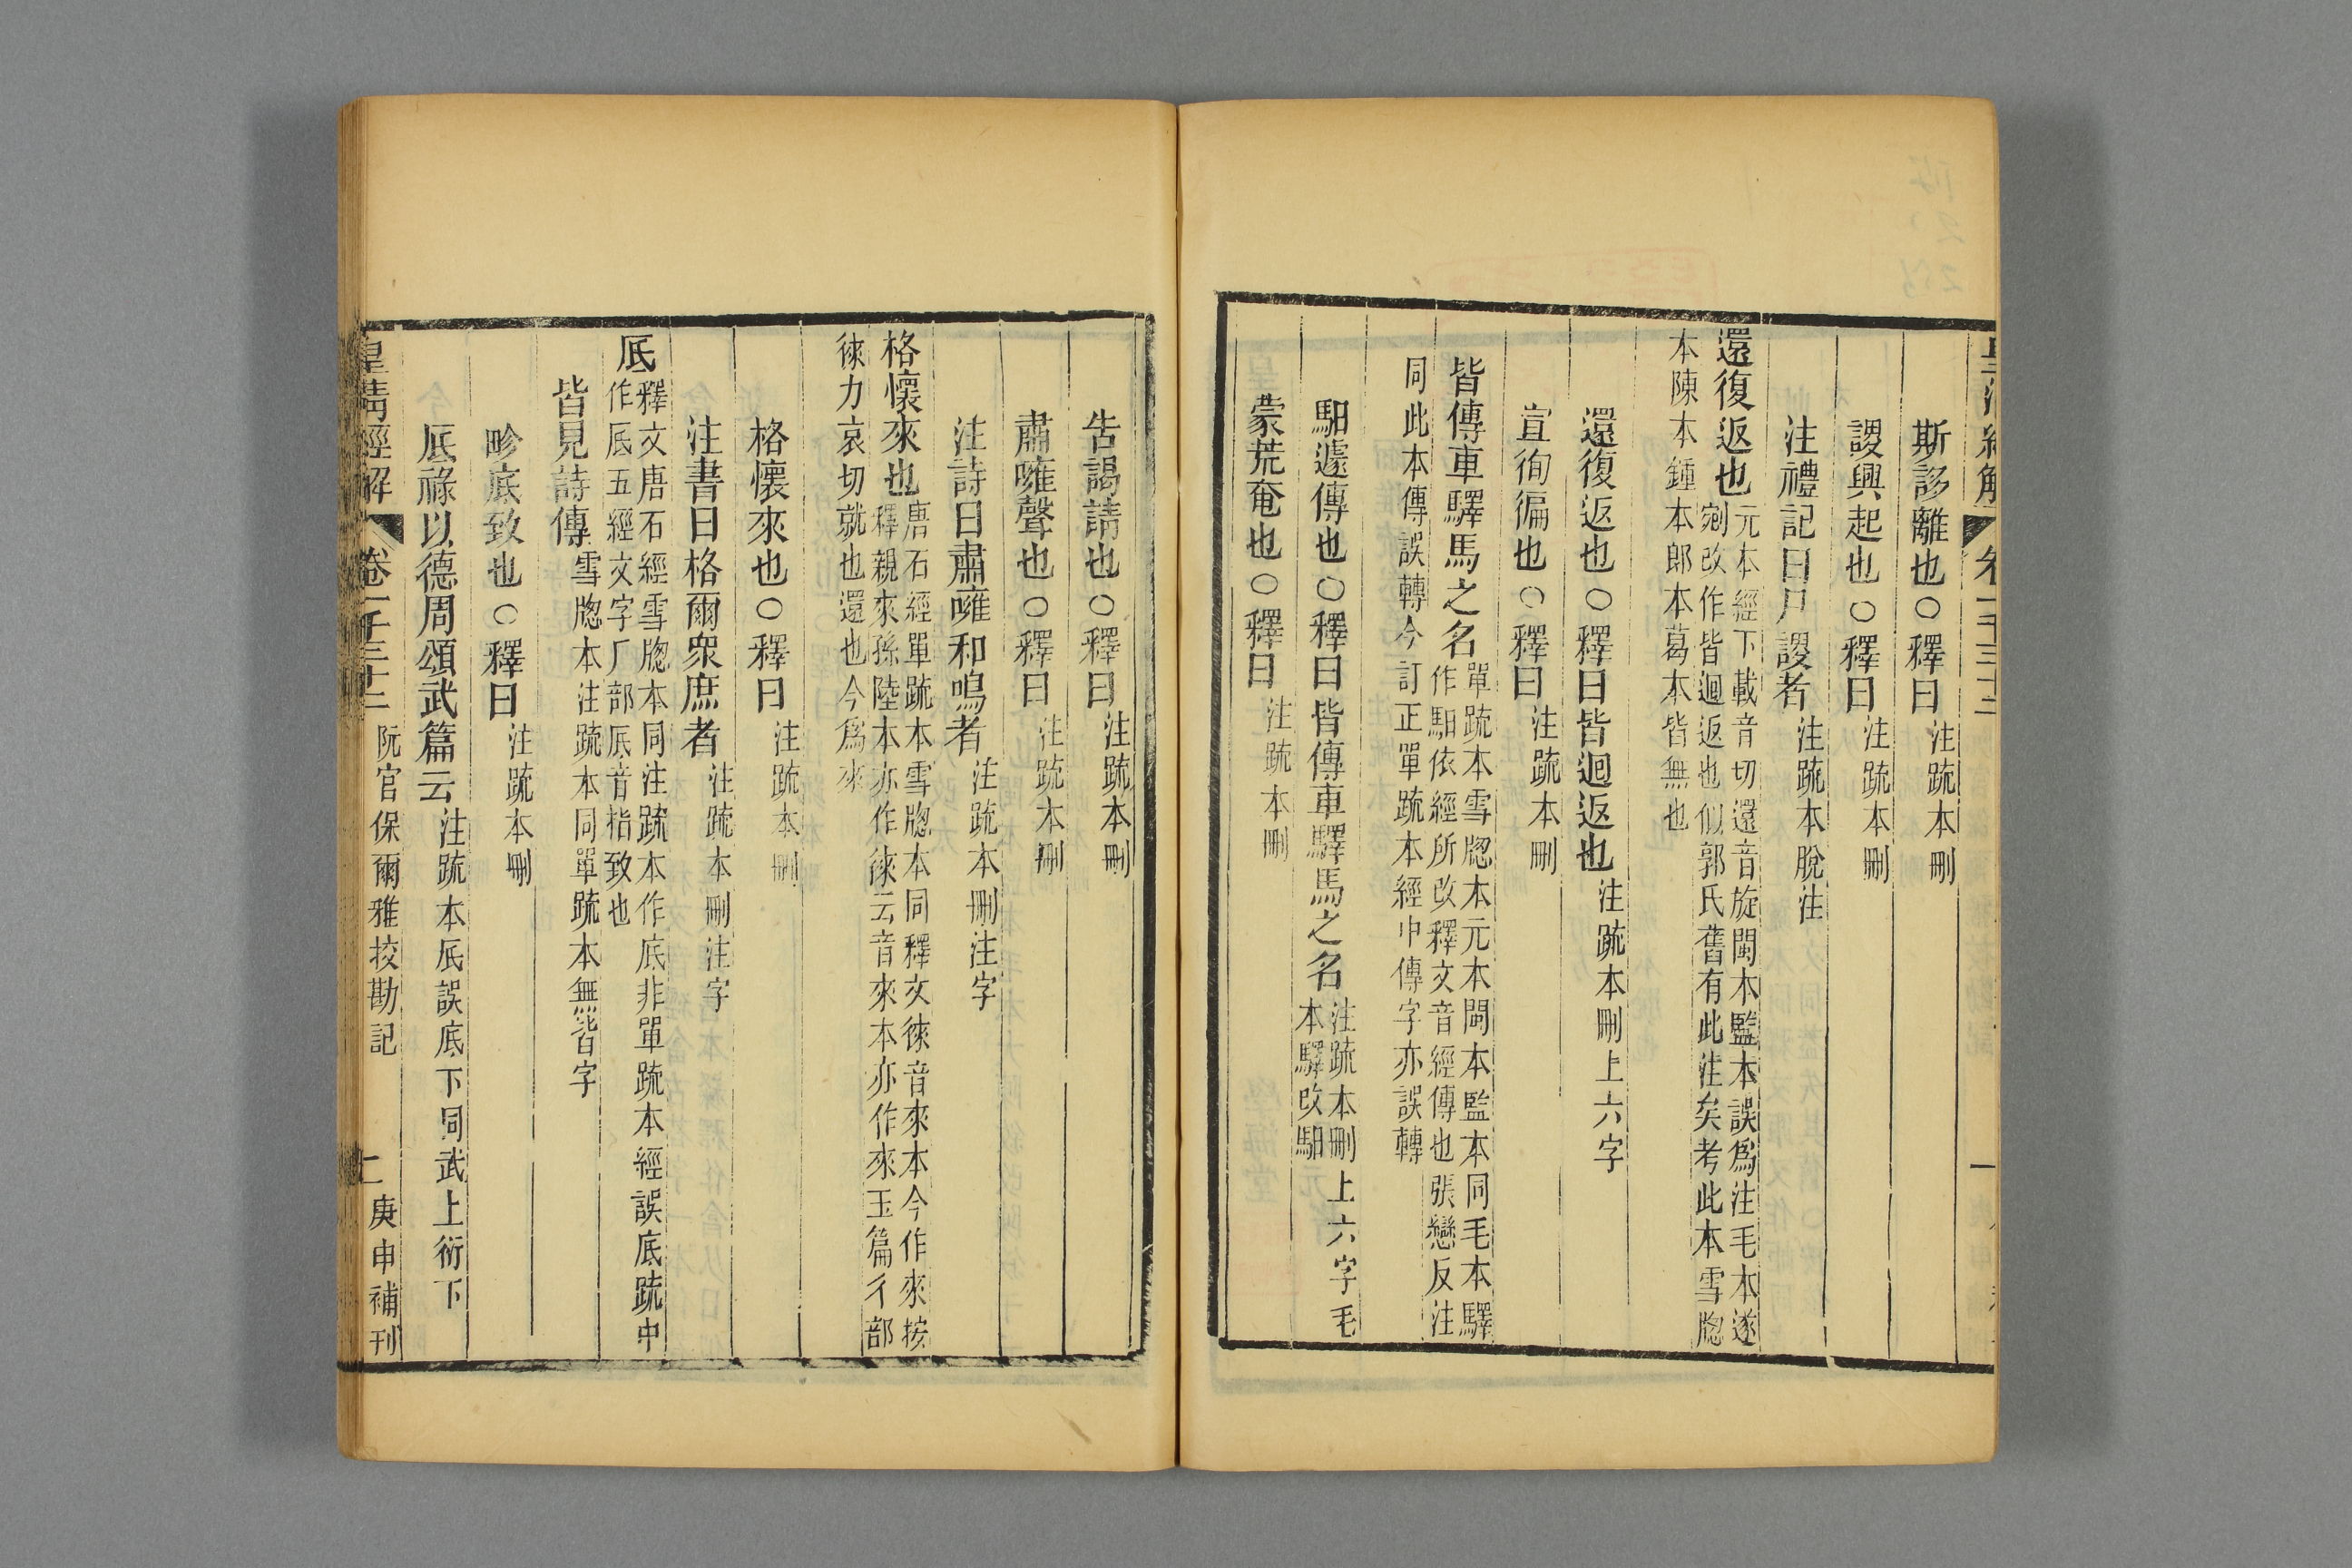 斯誃離也○釋曰注䟽本刪
謖興起也○釋曰注䟽本刪
注禮記曰尸謖者注䟽本脫注
還復返也元本經下載音切還音旋閩本監本誤為注毛本遂
剜改作皆迴返也似郭氏舊有此注矣考此本雪牎
本陳本鍾本郎本葛本皆無也
還復返也○釋曰皆迴返也注䟽本刪上六字
宣徇徧也○釋曰注䟽本刪
皆傳車驛馬之名單䟽本雪牎本元本閩本監本同毛本驛
作馹依經所改釋文音經傳也張戀反注
同此本傳誤轉今訂正單䟽本經中傳字亦誤轉
馹遽傳也○釋曰皆傳車驛馬之名注䟽本刪上六字毛
本驛改馹
蒙荒奄也○釋曰注䟽本刪
告謁請也○釋曰注䟽本刪
肅噰聲也○釋曰注䟽本刪
注詩曰肅噰和鳴者注䟽本刪注字
格懷來也唐石經單䟽本雪牎本同釋文徠音來本今作來按
釋親來孫陸本亦作徠云音來本亦作來玉篇彳部
徠力哀切就也還也今為來
格懷來也○釋曰注䟽本刪
注書曰格爾眾庶者注䟽本刪注字
厎釋文唐石經雪牎本同注䟽本作底非單䟽本經誤底䟽中
作厎五經文字厂部厎音指致也
皆見詩傳雪牎本注䟽本同單䟽本無皆字
畛底致也○釋曰注䟽本刪
厎祿以德周頌武篇云注䟽本厎誤底下同武上衍下
皇清經解 卷一千三十二 阮官保爾雅挍勘記 二 庚申補刊